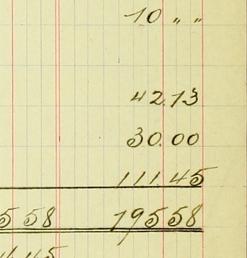 10 " "
42.13
30.00
111 45
5 58 195 58